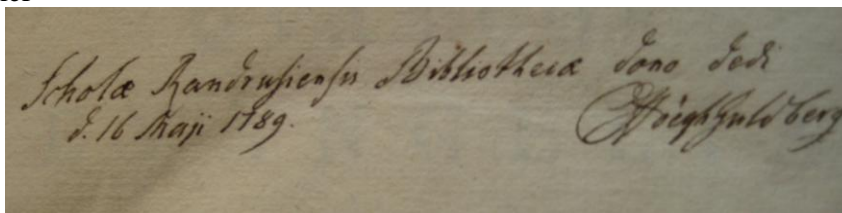 Scholæ Randrusiensis Bibliothecæ dono dedi
d. 16 Maji 1789.
Höegh Guldberg